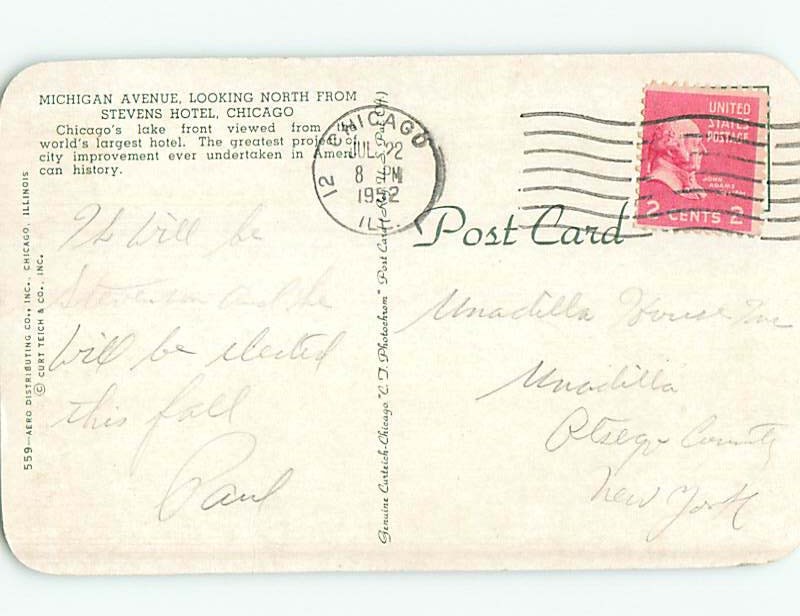 MICHIGAN AVENUE, LOOKING NORTH FROM
STEVENS HOTEL, CHICAGO
Chicago's lake front viewed from the
world's largest hotel. The greatest project of
city improvement ever undertaken in Ameri-
can history.
559—AERO DISTRIBUTING CO., INC., CHICAGO, ILLINOIS
© CURT TEICH & CO., INC.
It will be
Stevenson and he
will be elected
this fall
Paul
Genuine Curteich-Chicago "C. T. Photochrom" Post Card (Reg. U. S. Pat. Off.)
CHICAGO
12
JUL 22
8 PM
1952
ILL.
Post Card
UNITED
STATES
POSTAGE
JOHN
ADAMS
2 CENTS 2
Unadilla House Inc
Unadilla
Otsego County
New York